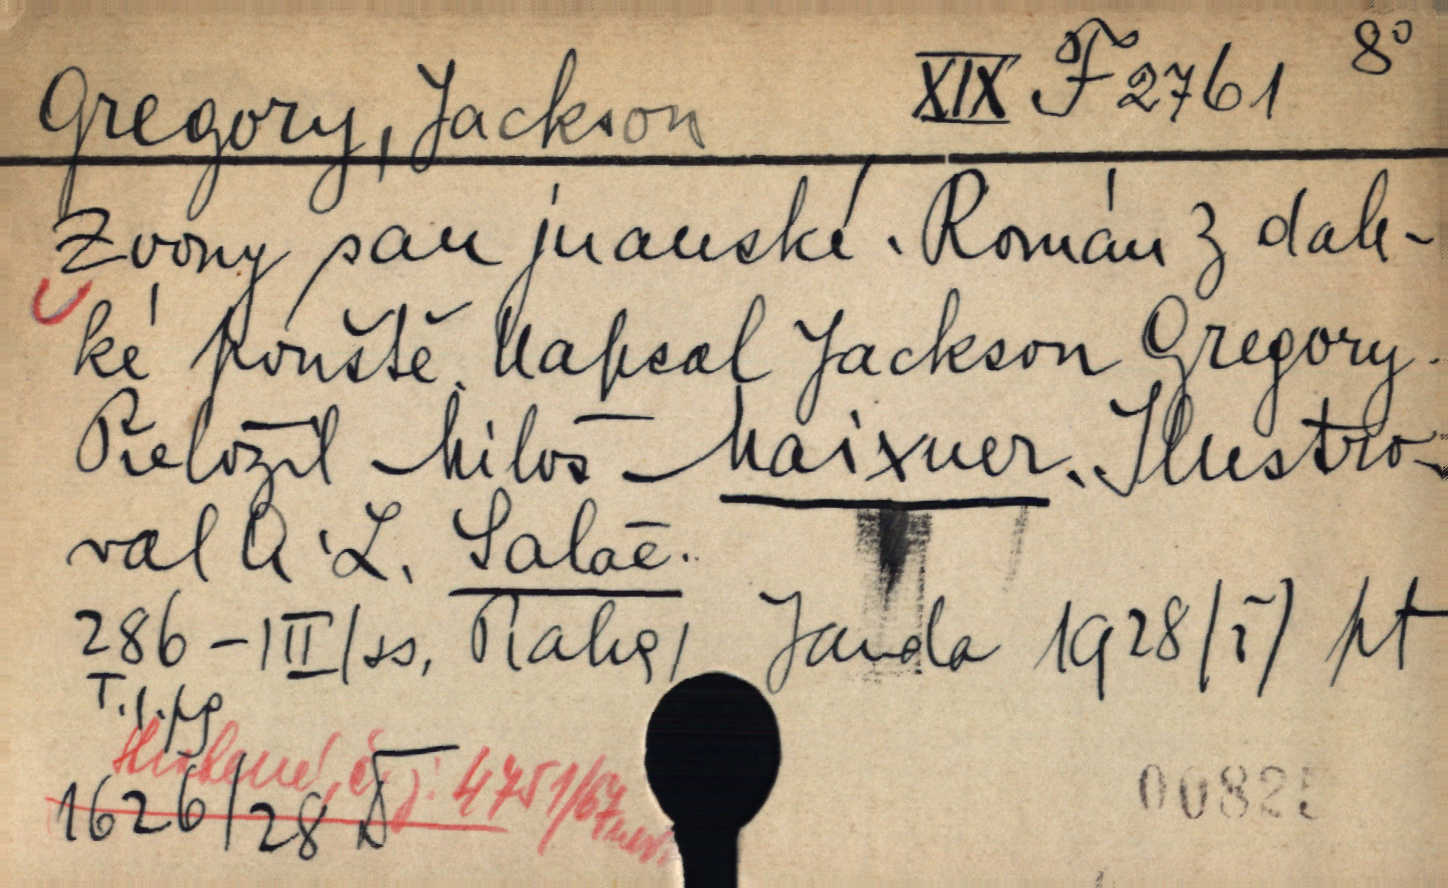 Gregory, Jackson XIX F 2761 8°
Zvony san juanské. Román z dale-
ké pouště. Napsal Jackson Gregory.
Přeložil Miloš Maixner. Ilustro-
val A. L. Salač.
286 - III/ss, Praha, Janda 1928/I/ pt
T. l. pg
č. j. 4751/67
1626/28 D
0082